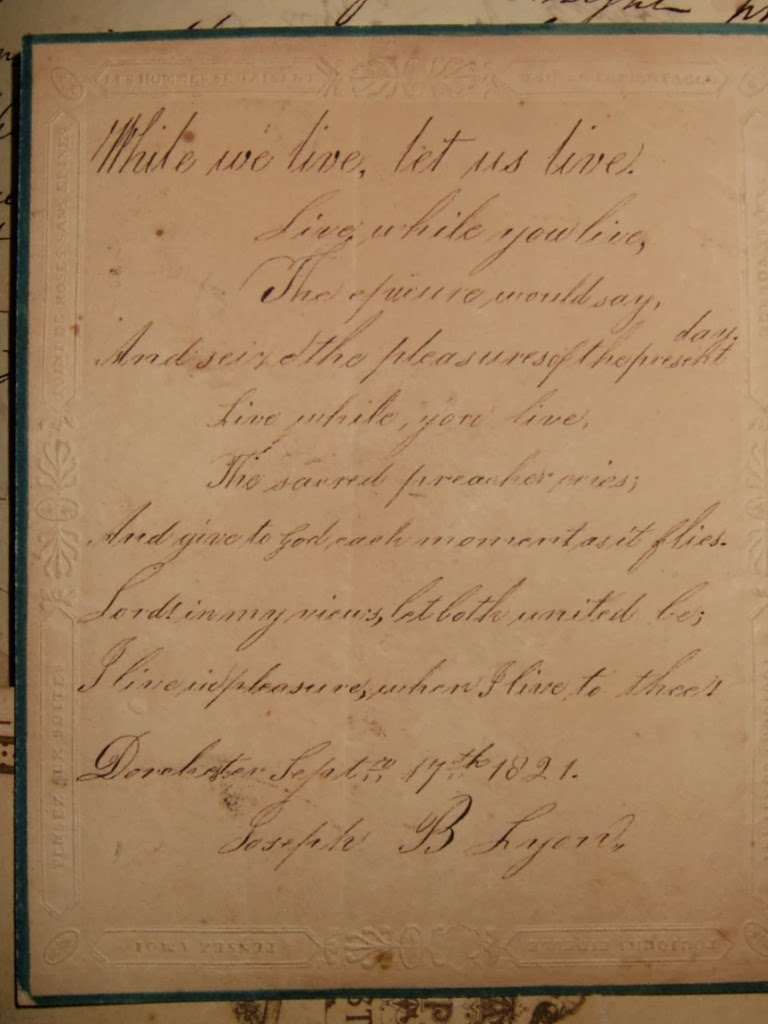 While we live, let us live.
Live while you live,
The epicure would say,
And seize the pleasures of the present day.
Live while, you live,
The sacred preacher cries;
And give to God each moment as it flies.
Lord! in my views, let both united be;
I live in pleasure, when I live to thee!
Dorchester Sept. 17th 1821.
Joseph B Lyon,
POINT DE ROSES SANS EPINES
PENSEZ AUX SUITES
PENSEZ A MOI
TOUJOURS